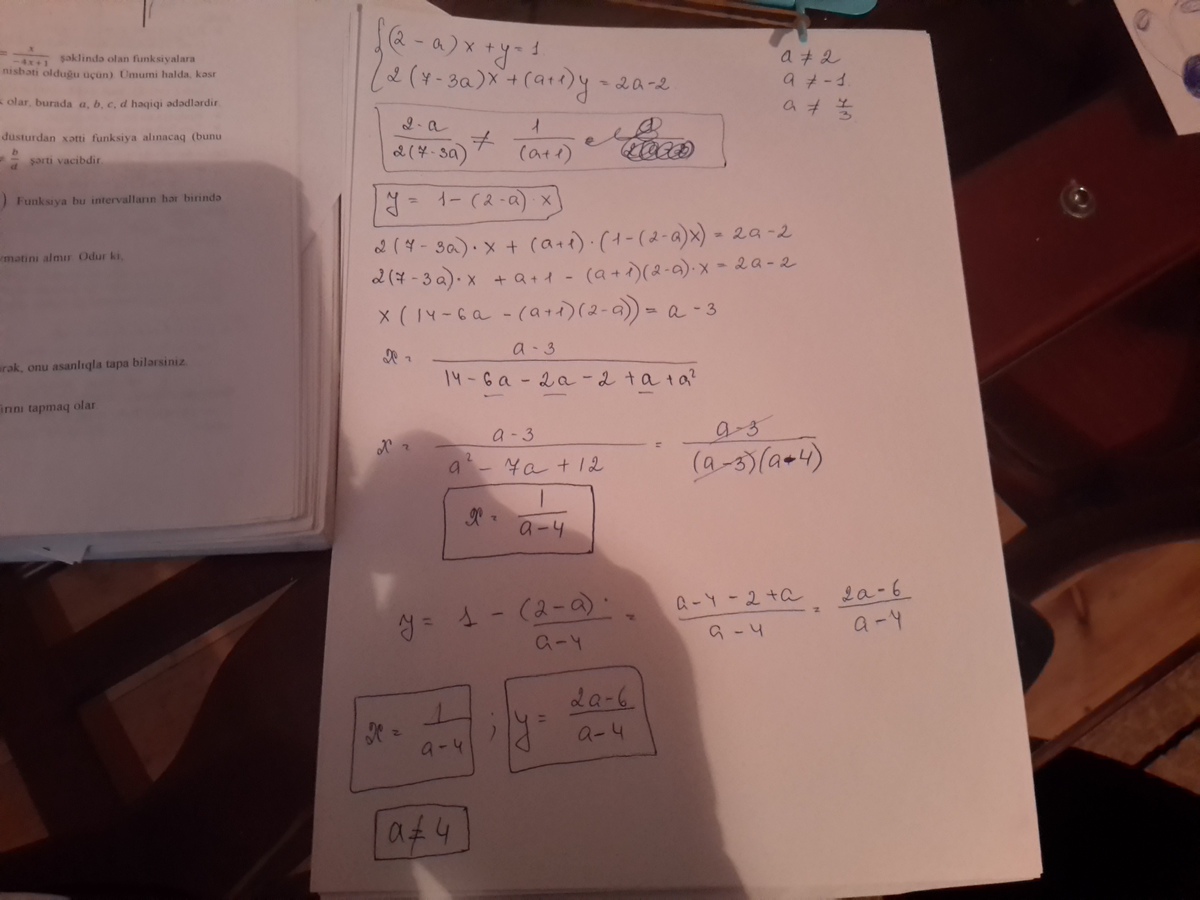 = x/(-4x+1) şəklində olan funksiyalara
nisbəti olduğu üçün). Ümumi halda, kəsr
olar, burada a, b, c, d həqiqi ədədlərdir.
düsturdan xətti funksiya alınacaq (bunu
≠ b/d şərti vacibdir.
) Funksiya bu intervalların hər birində
ymətini almır. Odur ki,
ərək, onu asanlıqla tapa bilərsiniz.
tapmaq olar
{(2-a)x+y=1
2(7-3a)x+(a+1)y=2a-2
a≠2
a≠-1
a≠7/3
(2-a)/(2(7-3a)) ≠ 1/(a+1)
y = 1-(2-a)·x
2(7-3a)·x + (a+1)·(1-(2-a)x) = 2a-2
2(7-3a)·x + a+1 - (a+1)(2-a)·x = 2a-2
x(14-6a-(a+1)(2-a)) = a-3
x = (a-3)/(14-6a-2a-2+a+a²)
x = (a-3)/(a²-7a+12) = (a-3)/((a-3)(a-4))
x = 1/(a-4)
y = 1 - (2-a)·/(a-4) = (a-4-2+a)/(a-4) = (2a-6)/(a-4)
x = 1/(a-4) ; y = (2a-6)/(a-4)
a≠4